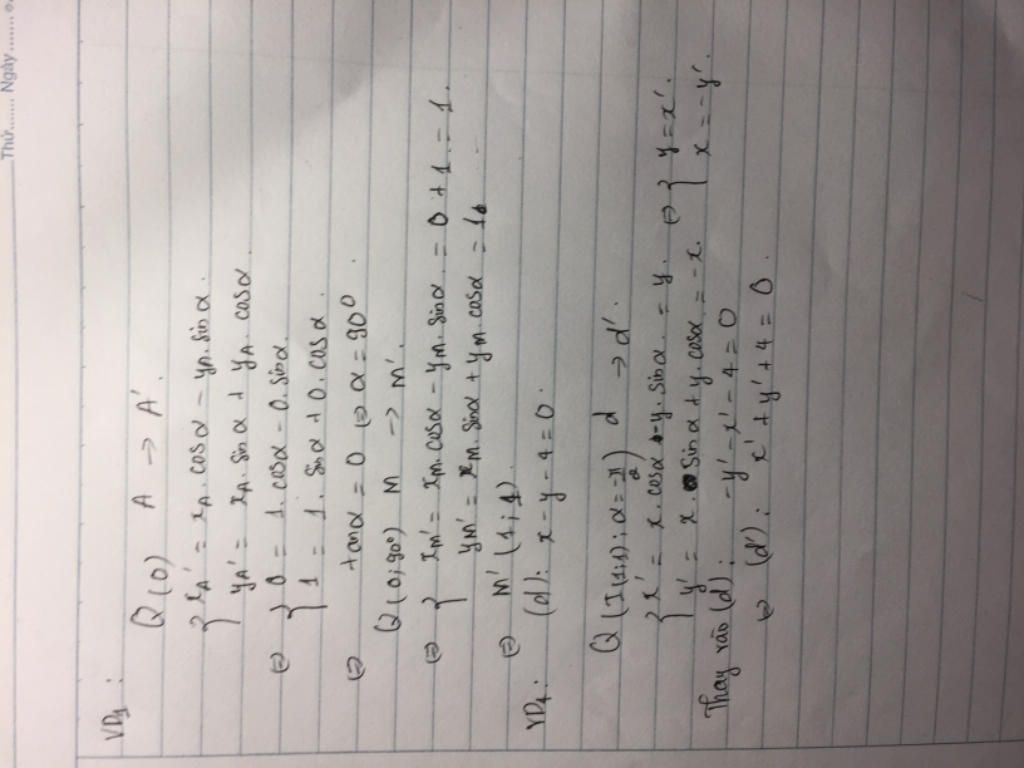 Thứ........ Ngày........
VD1:
Q(O) A → A'.
{ xA' = xA. cosα - yA. sinα.
yA' = xA. sinα + yA. cosα
⇔ { 0 = 1. cosα - 0. sinα.
1 = 1. sinα + 0. cosα.
⇔ tanα = 0 ⇔ α = 90°
Q(0, 90°) M → M'.
⇔ { xM' = xM. cosα - yM. sinα. = 0 + 1. = 1.
yM' = xM. sinα + yM. cosα = 1.
⇔ M' (1; 1).
VD4: (d): x - y - 4 = 0.
Q (I(1;1); α = -π/2) d → d'.
{ x' = x. cosα - y. sinα. = y. ⇔ { y = x'.
y' = x. sinα + y. cosα. = -x. x = -y'.
Thay vào (d): -y' - x' - 4 = 0
⇔ (d'): x' + y' + 4 = 0.